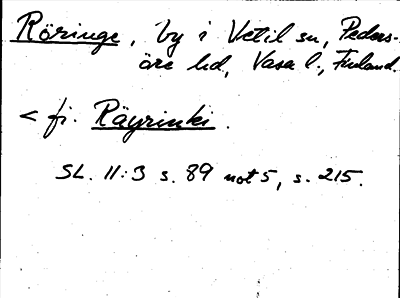 Röringe, by i Vetil sn, Peders-
öre hd, Vasa l., Finland.
< fi. Räyrinki.
SL. 11:3 s. 89 not 5, s. 215.